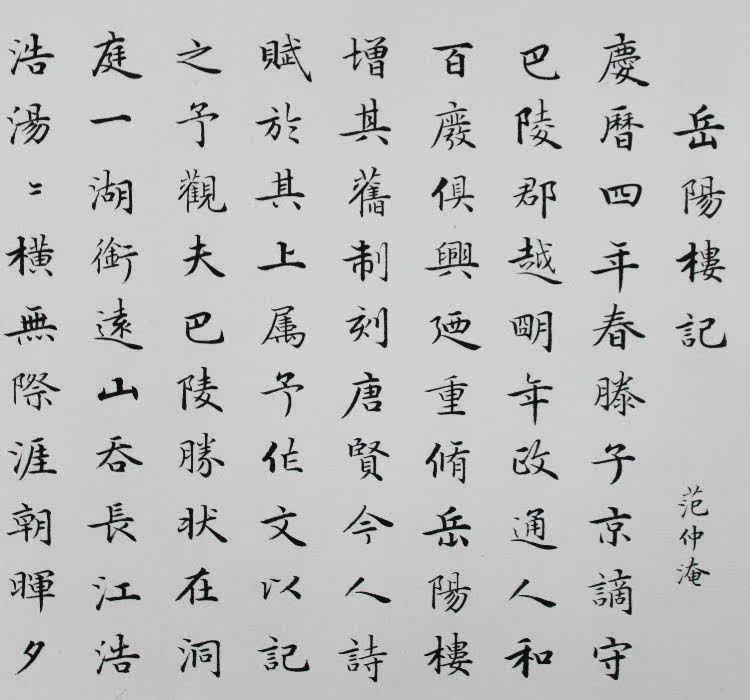 岳陽樓記 范仲淹
慶暦四年春滕子京謫守
巴陵郡越明年政通人和
百廢俱興廼重脩岳陽樓
增其舊制刻唐賢今人詩
賦於其上属予作文以記
之予觀夫巴陵勝狀在洞
庭一湖銜遠山吞長江浩
浩湯〻橫無際涯朝暉夕